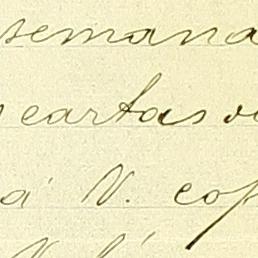 semana
cartas
á V. cop